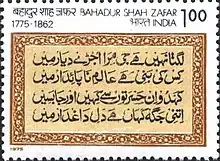 बहादुर शाह ज़फ़र BAHADUR SHAH ZAFAR
1775-1862 भारत INDIA 100
لگتا نہیں ہے جی مرا اجڑے دیار میں
کس کی بنی ہے عالم ناپائدار میں
کہدو ان حسرتوں سے کہیں اور جا بسیں
اتنی جگہ کہاں ہے دل داغدار میں
1975